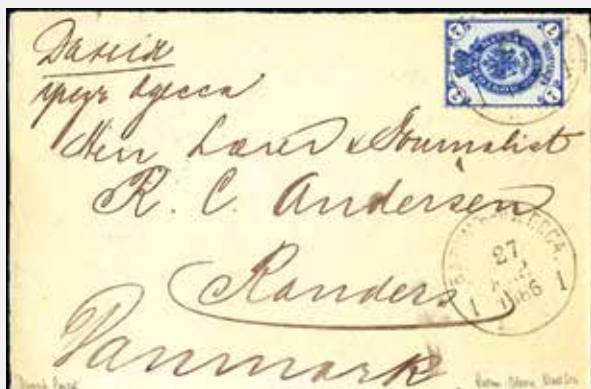 Данія
чрезъ Одесса
Herr Lærer & Journalist
R. C. Andersen
Randers
Danmark
7 7
7 7
27
1886
1 1